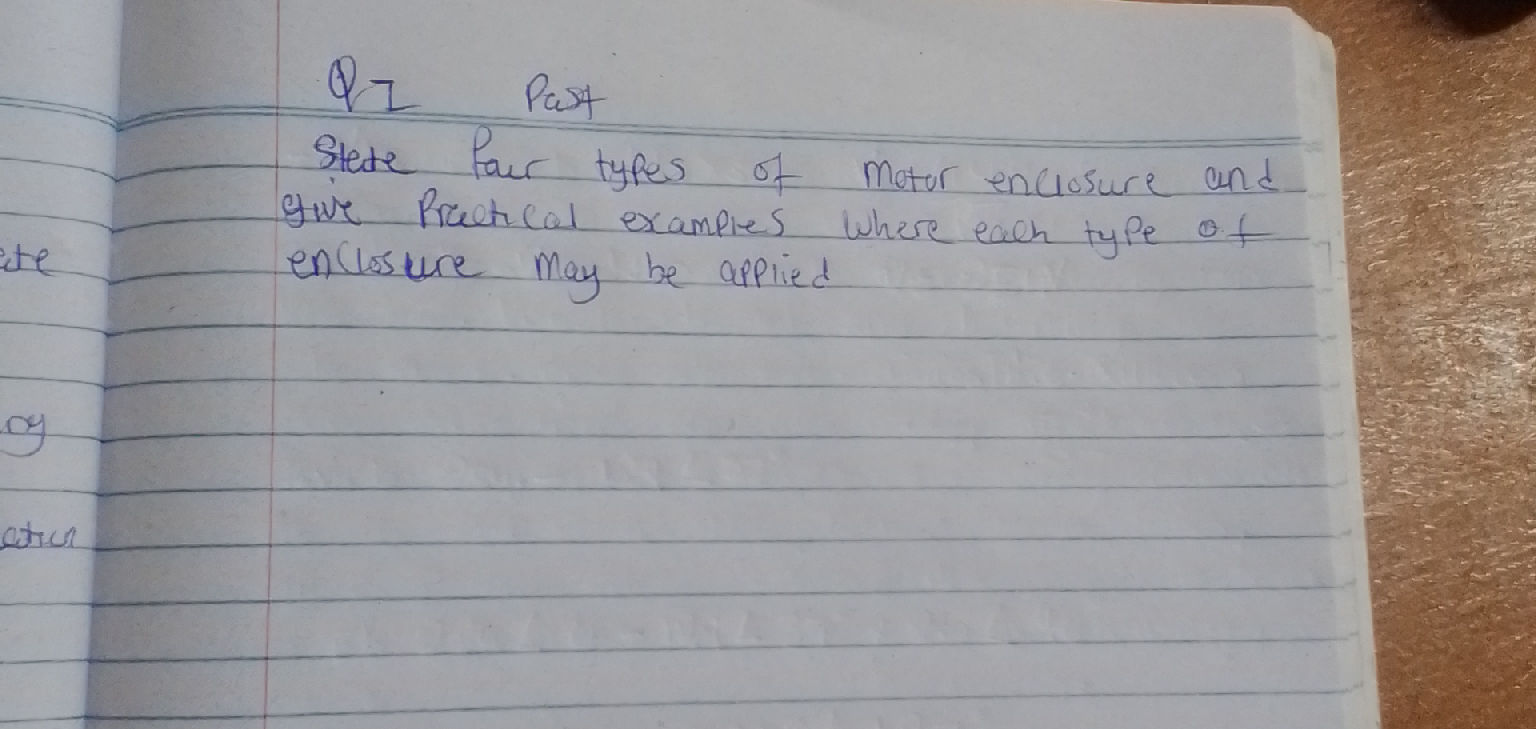 Q1 Past
State four types of motor enclosure and
give Practical examples where each type of
enclosure may be applied
ate
oy